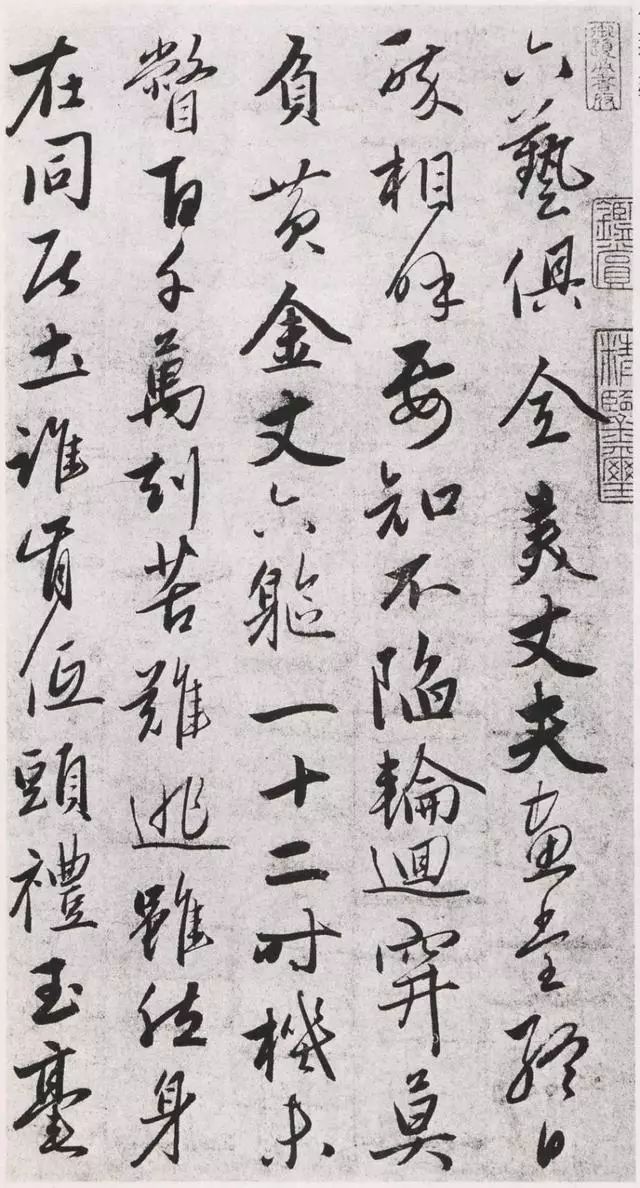 六藝俱全美丈夫畫堂終日
醉相呼要知不陷輪迴穽莫
負黃金丈六軀一十二时機未
瞥百千萬刧苦難逃雖然身
在同居土誰肯低頭禮玉毫